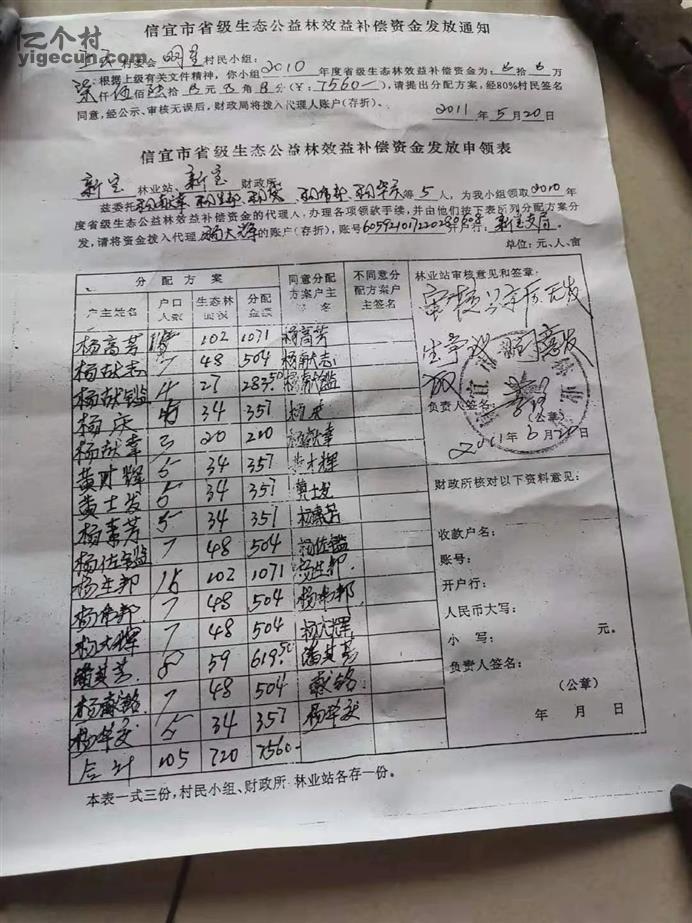 信宜市省级生态公益林效益补偿资金发放通知
亿个村
yigecun.com
村委会 明星 村民小组:
根据上级有关文件精神，你小组2010年度省级生态林效益补偿资金为: 拾 万
柒仟伍佰陆拾 元 角 分(¥: 7560 )，请提出分配方案，经80%村民签名
同意，经公示、审核无误后，财政局将拨入代理人账户(存折)。
2011年5月20日
信宜市省级生态公益林效益补偿资金发放申领表
新宝 林业站、新宝 财政所:
兹委托 等5人，为我小组领取2010年
度省级生态公益林效益补偿资金的代理人，办理各项领款手续，并由他们按下表所列分配方案分
发，请将资金拨入代理 杨大辉 的账户(存折)，账号 开户行: 新宝支局.
单位:元、人、亩
分配方案 同意分配方案户主签名 不同意分配方案户主签名 林业站审核意见和签章:
户主姓名 户口人数 生态林面积 分配金额
杨高芳 102 1071 杨高芳
杨献志 7 48 504 杨献志
杨献鉴 4 27 283.50 杨献鉴
杨庆 34 357
杨献章 3 20 210 杨献章
黄财辉 5 34 357 黄才辉
黄士发 5 34 357 黄士发
杨素芳 5 34 357 杨素芳
杨佐鉴 7 48 504 杨佐鉴
杨生邦 15 102 1071 杨生邦
杨伟邦 7 48 504 杨伟邦
杨大辉 7 48 504 杨大辉
59 619.50
杨献铭 7 48 504 献铭
5 34 357
合计 105 720 7560
审核公示后无发
生争议 同意发
放
负责人签名:
(公章)
2011年5月20日
财政所核对以下资料意见:
收款户名:
账号:
开户行:
人民币大写:
小写: 元。
负责人签名:
(公章)
年 月 日
本表一式三份，村民小组、财政所 林业站各存一份。